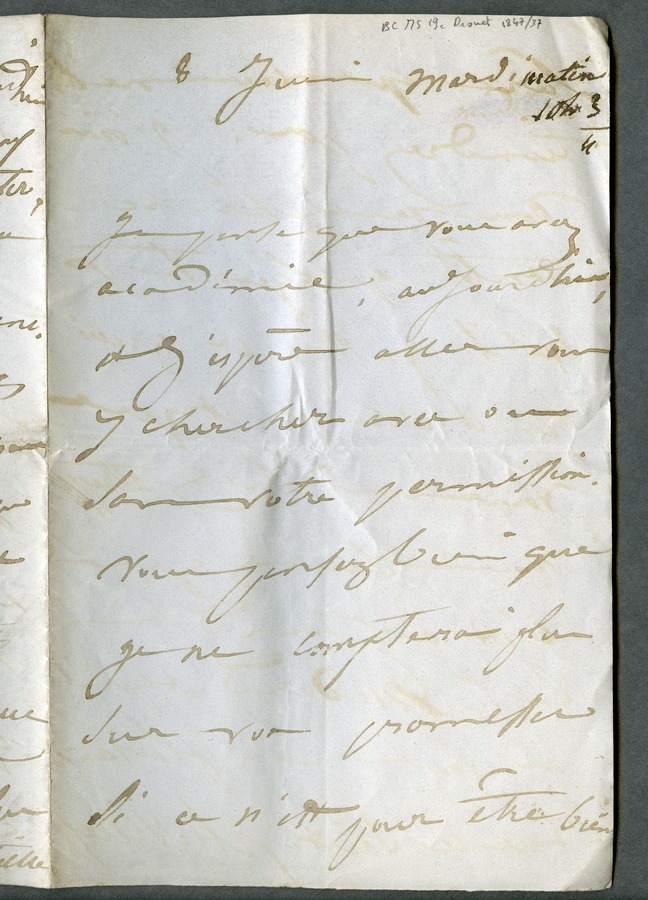 BC MS 19c Drouet 1847/37
8 Juin Mardi matin
10h 3/4
Je pense que vous avez
académie, aujourd'hui,
et j'espère aller vous
y chercher avec ou
sans votre permission.
Vous pensez bien que
je ne compterai plus
sur vos promesses
si ce n'est pour être bien